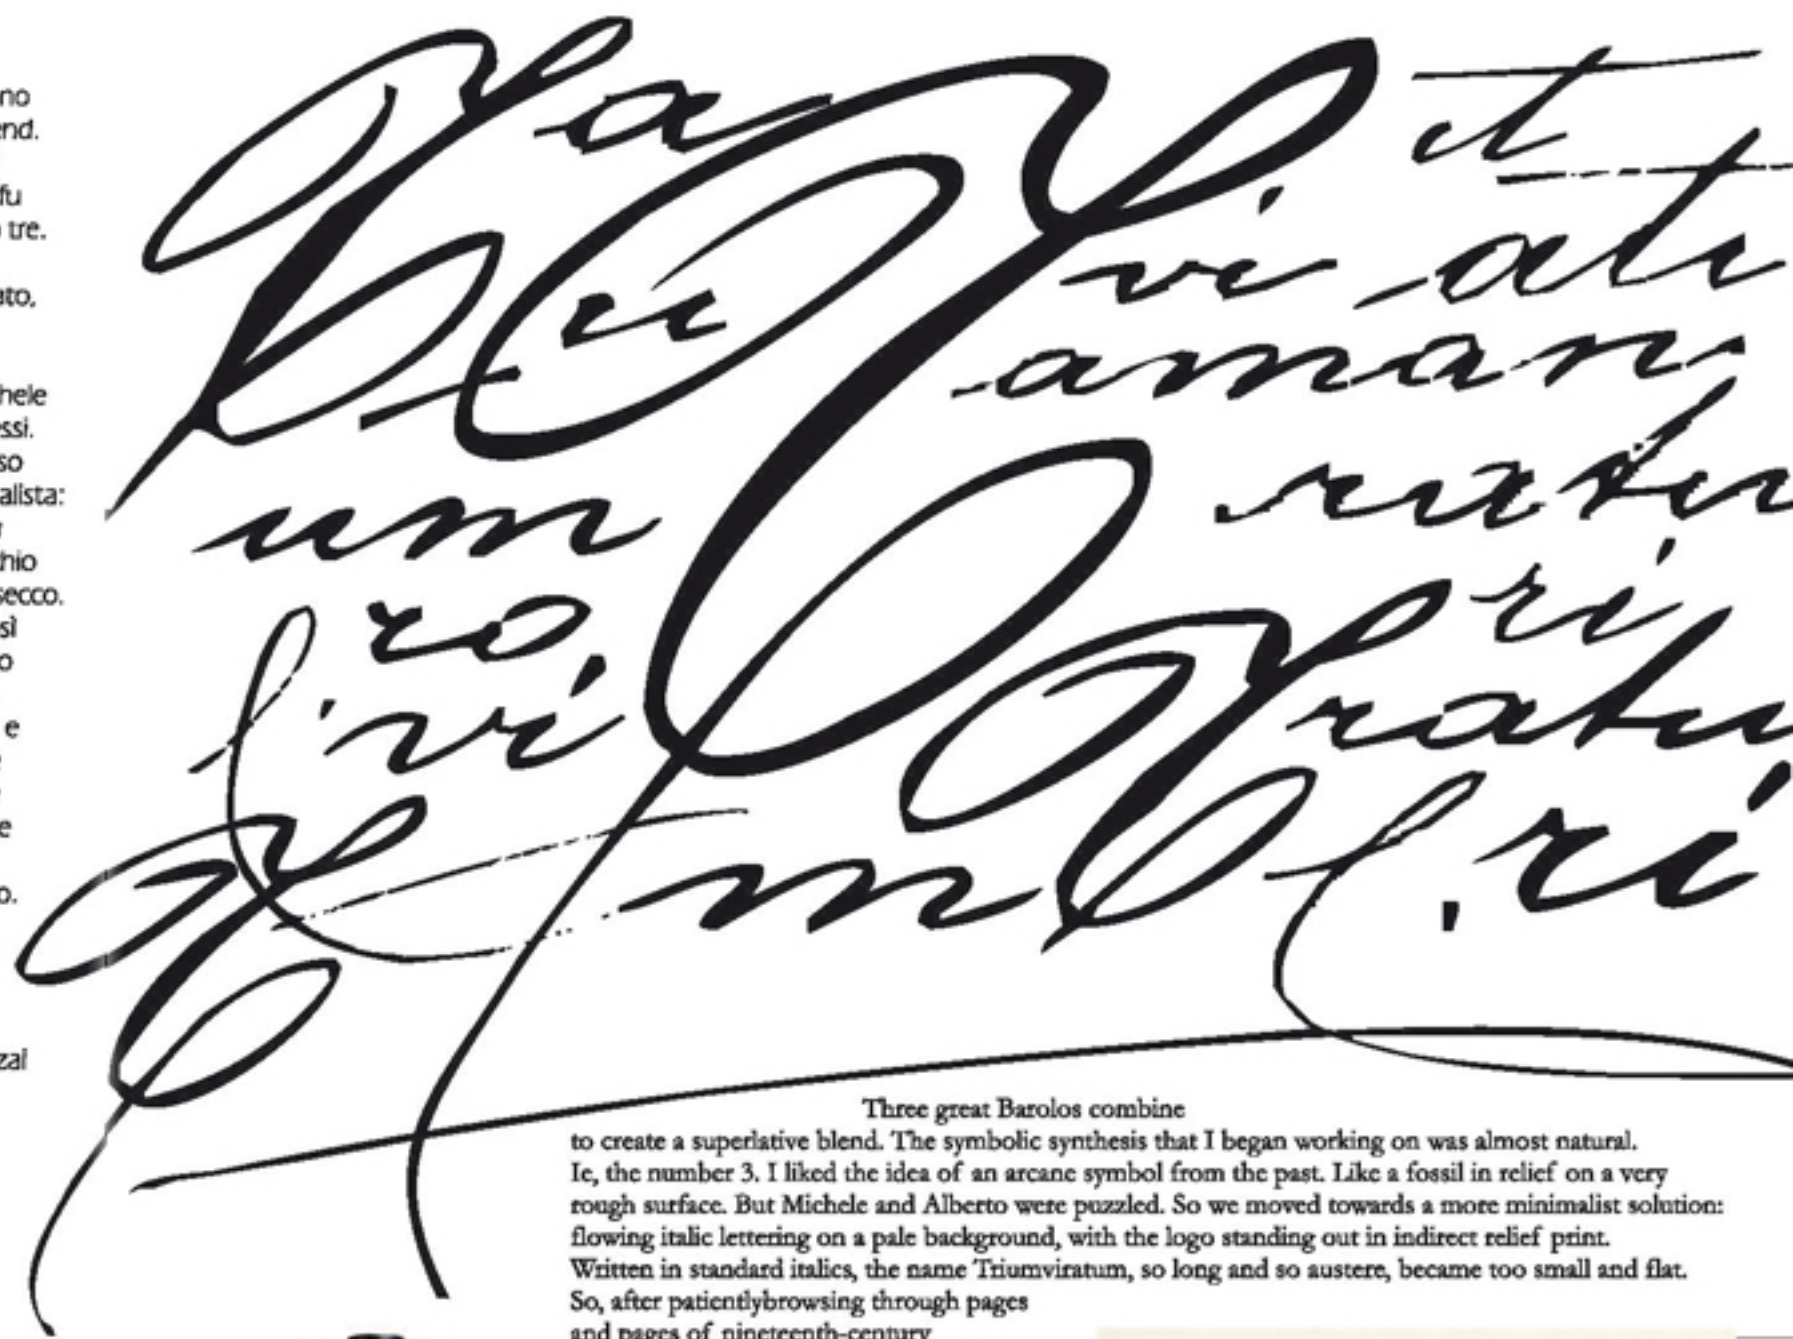 no
end.
fu
tre.
ato,
hele
essi.
so
alista:
hio
secco.
sì
o
e
e
o.
zai
a
et
u
vi
ati
aman
um
ratu
ro,
ri
vi
ratu
m
ri
Three great Barolos combine
to create a superlative blend. The symbolic synthesis that I began working on was almost natural.
Ie, the number 3. I liked the idea of an arcane symbol from the past. Like a fossil in relief on a very
rough surface. But Michele and Alberto were puzzled. So we moved towards a more minimalist solution:
flowing italic lettering on a pale background, with the logo standing out in indirect relief print.
Written in standard italics, the name Triumviratum, so long and so austere, became too small and flat.
So, after patientlybrowsing through pages
and pages of nineteenth-century